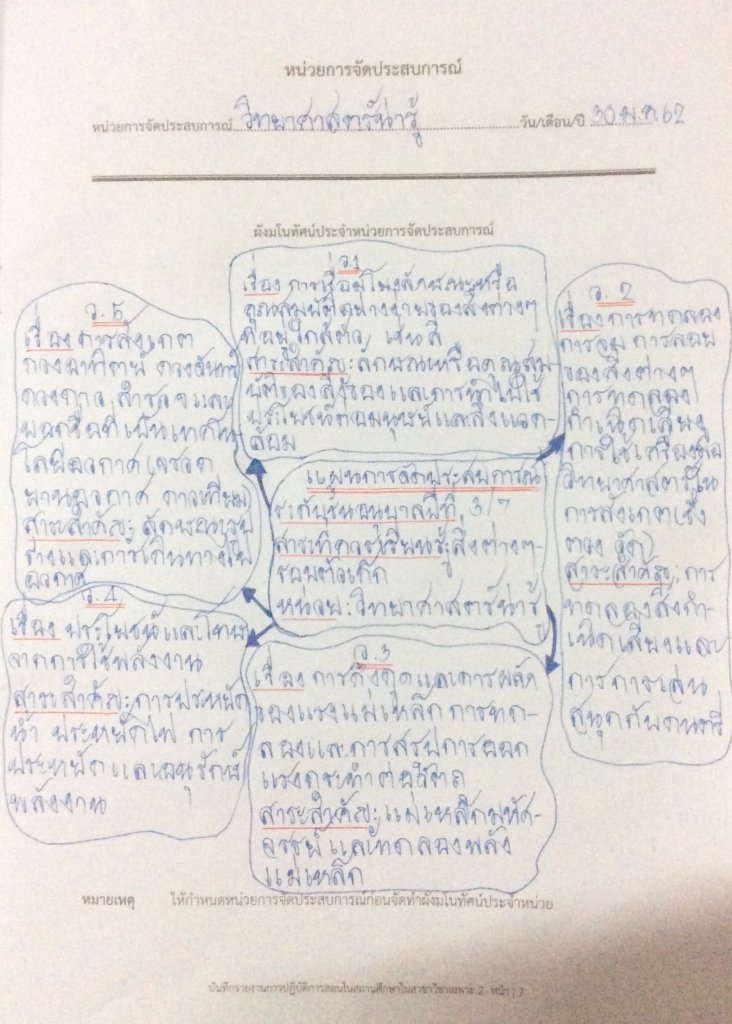 หน่วยการจัดประสบการณ์
หน่วยการจัดประสบการณ์ วิทยาศาสตร์น่ารู้ วัน/เดือน/ปี 30 ม.ค. 62
ผังมโนทัศน์ประจำหน่วยการจัดประสบการณ์
ว.1
เรื่อง การเชื่อมโยงลักษณะหรือ
คุณสมบัติอย่างง่ายของสิ่งต่างๆ
ที่อยู่ใกล้ตัว เช่น สี
สาระสำคัญ: ลักษณะหรือคุณสม
บัติของสิ่งของและการนำไปใช้
ประโยชน์ต่อมนุษย์และสิ่งแวด-
ล้อม
ว.2
เรื่อง การทดลอง
การจม การลอย
ของสิ่งต่างๆ
การทดลอง
กำเนิดเสียง
การใช้เครื่องมือ
วิทยาศาสตร์ใน
การสังเกต(ชั่ง
ตวง วัด)
สาระสำคัญ: การ
ทดลองสิ่งกำ-
เนิดเสียงและ
การการเล่น
สนุกกับดนตรี
ว.5
เรื่อง การสังเกต
ดวงอาทิตย์ ดวงจันทร์
ดวงดาว สำรวจและ
บอกชื่อที่เป็นเทคโน
โลยีอวกาศ (จรวด
ยานอวกาศ ดาวเทียม)
สาระสำคัญ: ลักษณะรูป
ร่างและการเดินทางไป
อวกาศ
แผนการจัดประสบการณ์
ระดับชั้นอนุบาลปีที่ 3/7
สาระที่ควรเรียนรู้: สิ่งต่างๆ-
รอบตัวเด็ก
หน่วย: วิทยาศาสตร์น่ารู้
ว.4
เรื่อง ประโยชน์และโทษ
จากการใช้พลังงาน
สาระสำคัญ: การประหยัด
น้ำ ประหยัดไฟ การ
ประหยัดและอนุรักษ์
พลังงาน
ว.3
เรื่อง การดึงดูดและการผลัก
ของแรงแม่เหล็ก การทด-
ลองและการสรุปการออก
แรงกระทำต่อ
สาระสำคัญ: แม่เหล็กมหัศ-
จรรย์และทดลองพลัง
แม่เหล็ก
หมายเหตุ ให้กำหนดหน่วยการจัดประสบการณ์ก่อนจัดทำผังมโนทัศน์ประจำหน่วย
บันทึกรายงานการปฏิบัติการสอนในสถานศึกษาในสาขาวิชาเฉพาะ 2 หน้า | 7